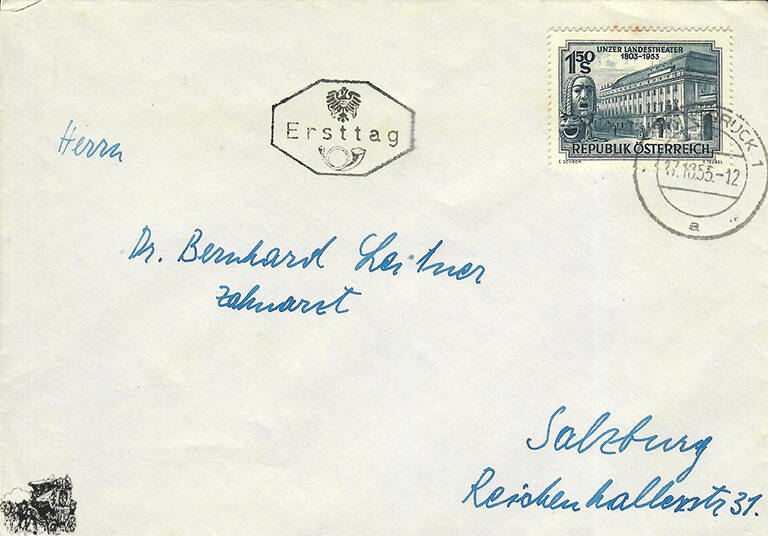 UNZER LANDESTHEATER
1803-1953
1 50 S
REPUBLIK ÖSTERREICH
BRÜCK 1
-12
a
Ersttag
Herrn
Dr. Bernhard Leitner
Zahnarzt
Salzburg
Reichenhallerstr 31.